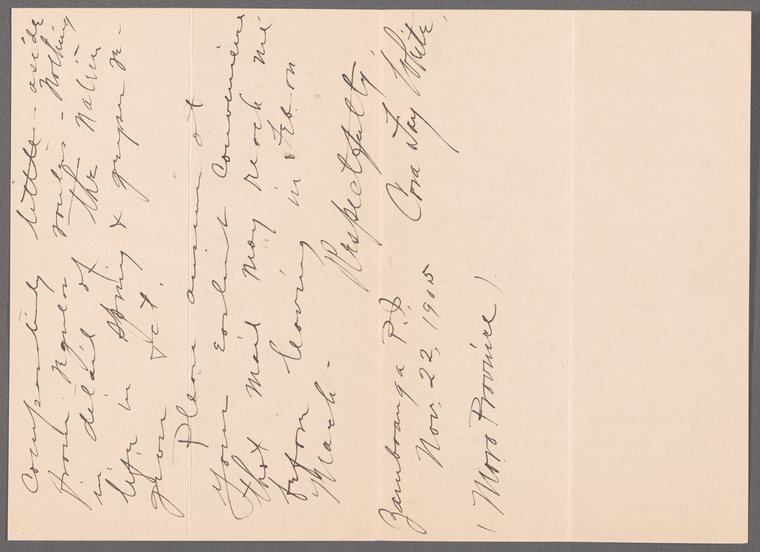 comparatively little - aside
from regular routes - nothing
in detail of the Native
life in
Please answer at
your earliest convenience
that mail may reach me
before leaving in Feb. or
March -
Respectfully,
Cora Fay White,
Zamboanga P.I.
Nov. 22, 1905
(Moro Province)